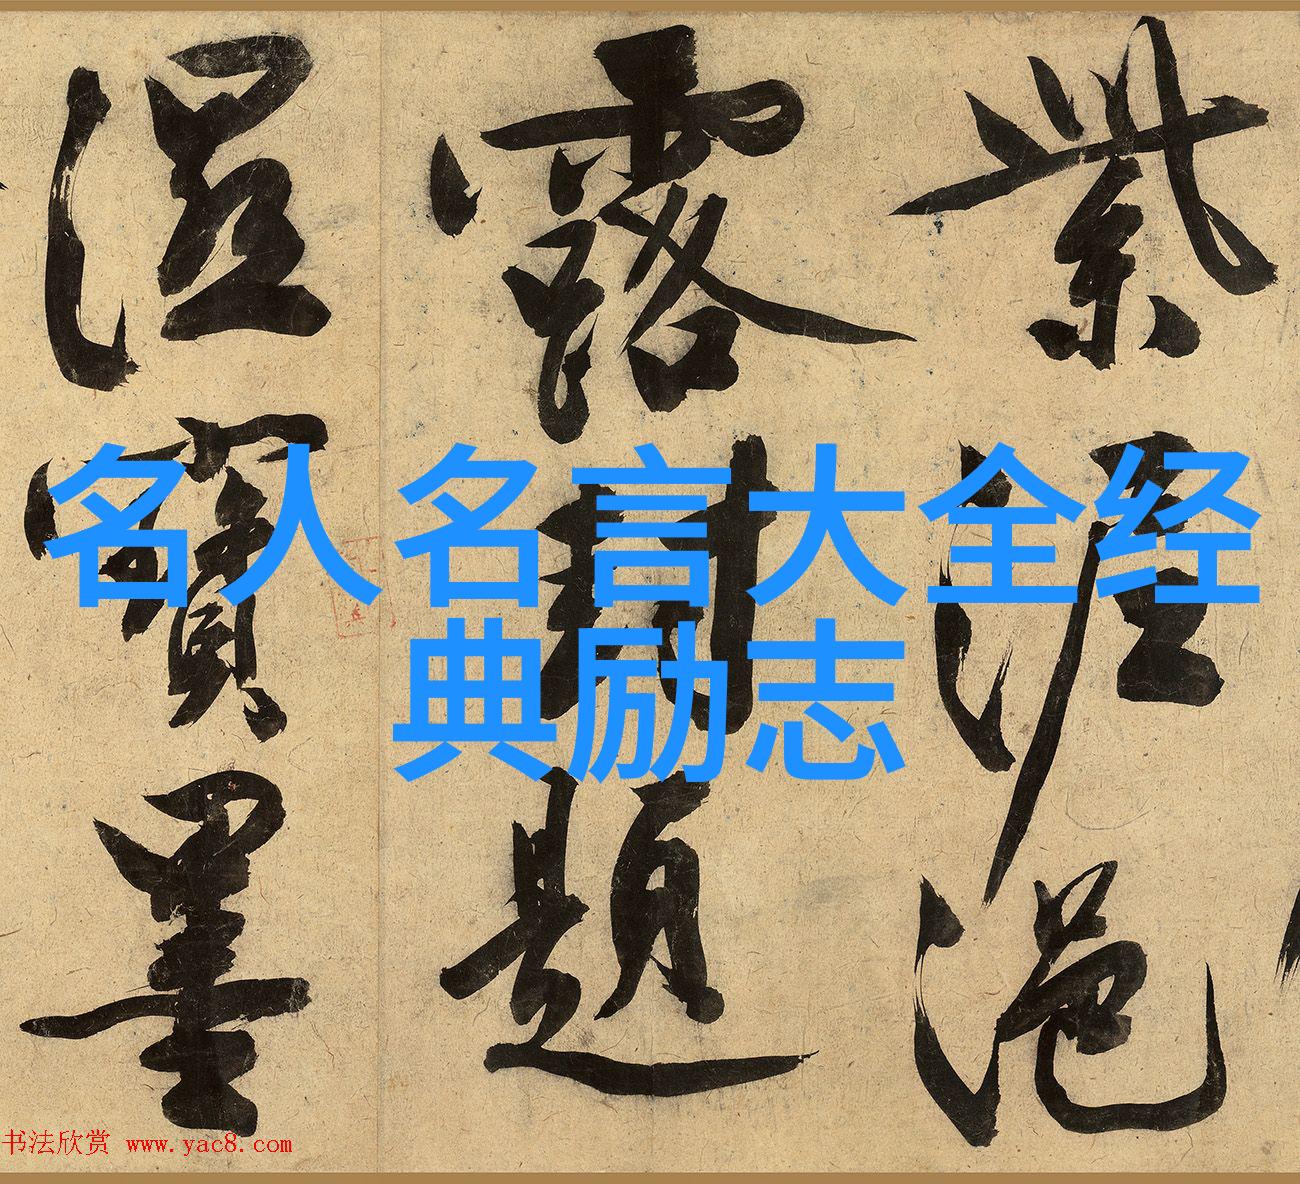 紫泥浥
露封題
濕寶墨
名人名言大全经
典励志
书法欣赏 www.yac8.com